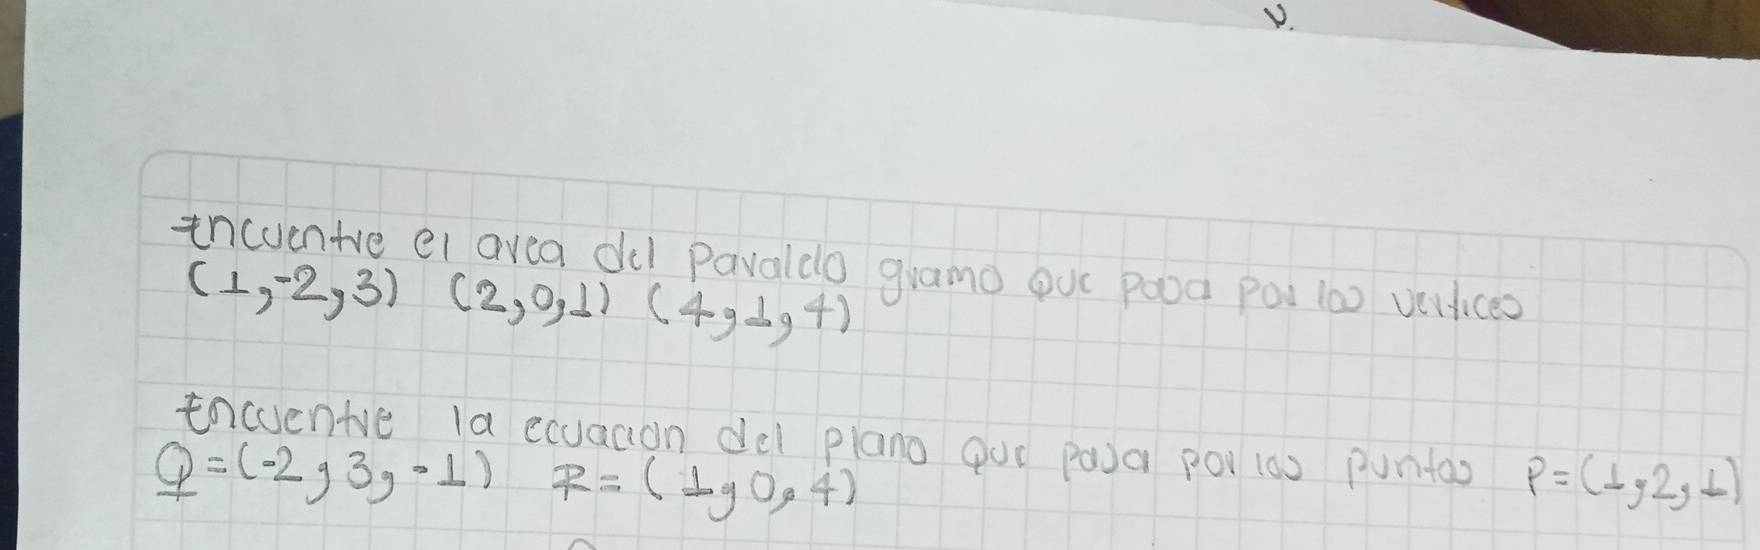 V.
Encuentre el area del Paraldo gramo que pasa por los vertices
(1,-2,3) (2,0,1) (4,1,4)
Encuentre la ecuacion del plano que pasa por los puntos P=(1,2,1)
Q=(-2,3,-1) R=(1,0,4)